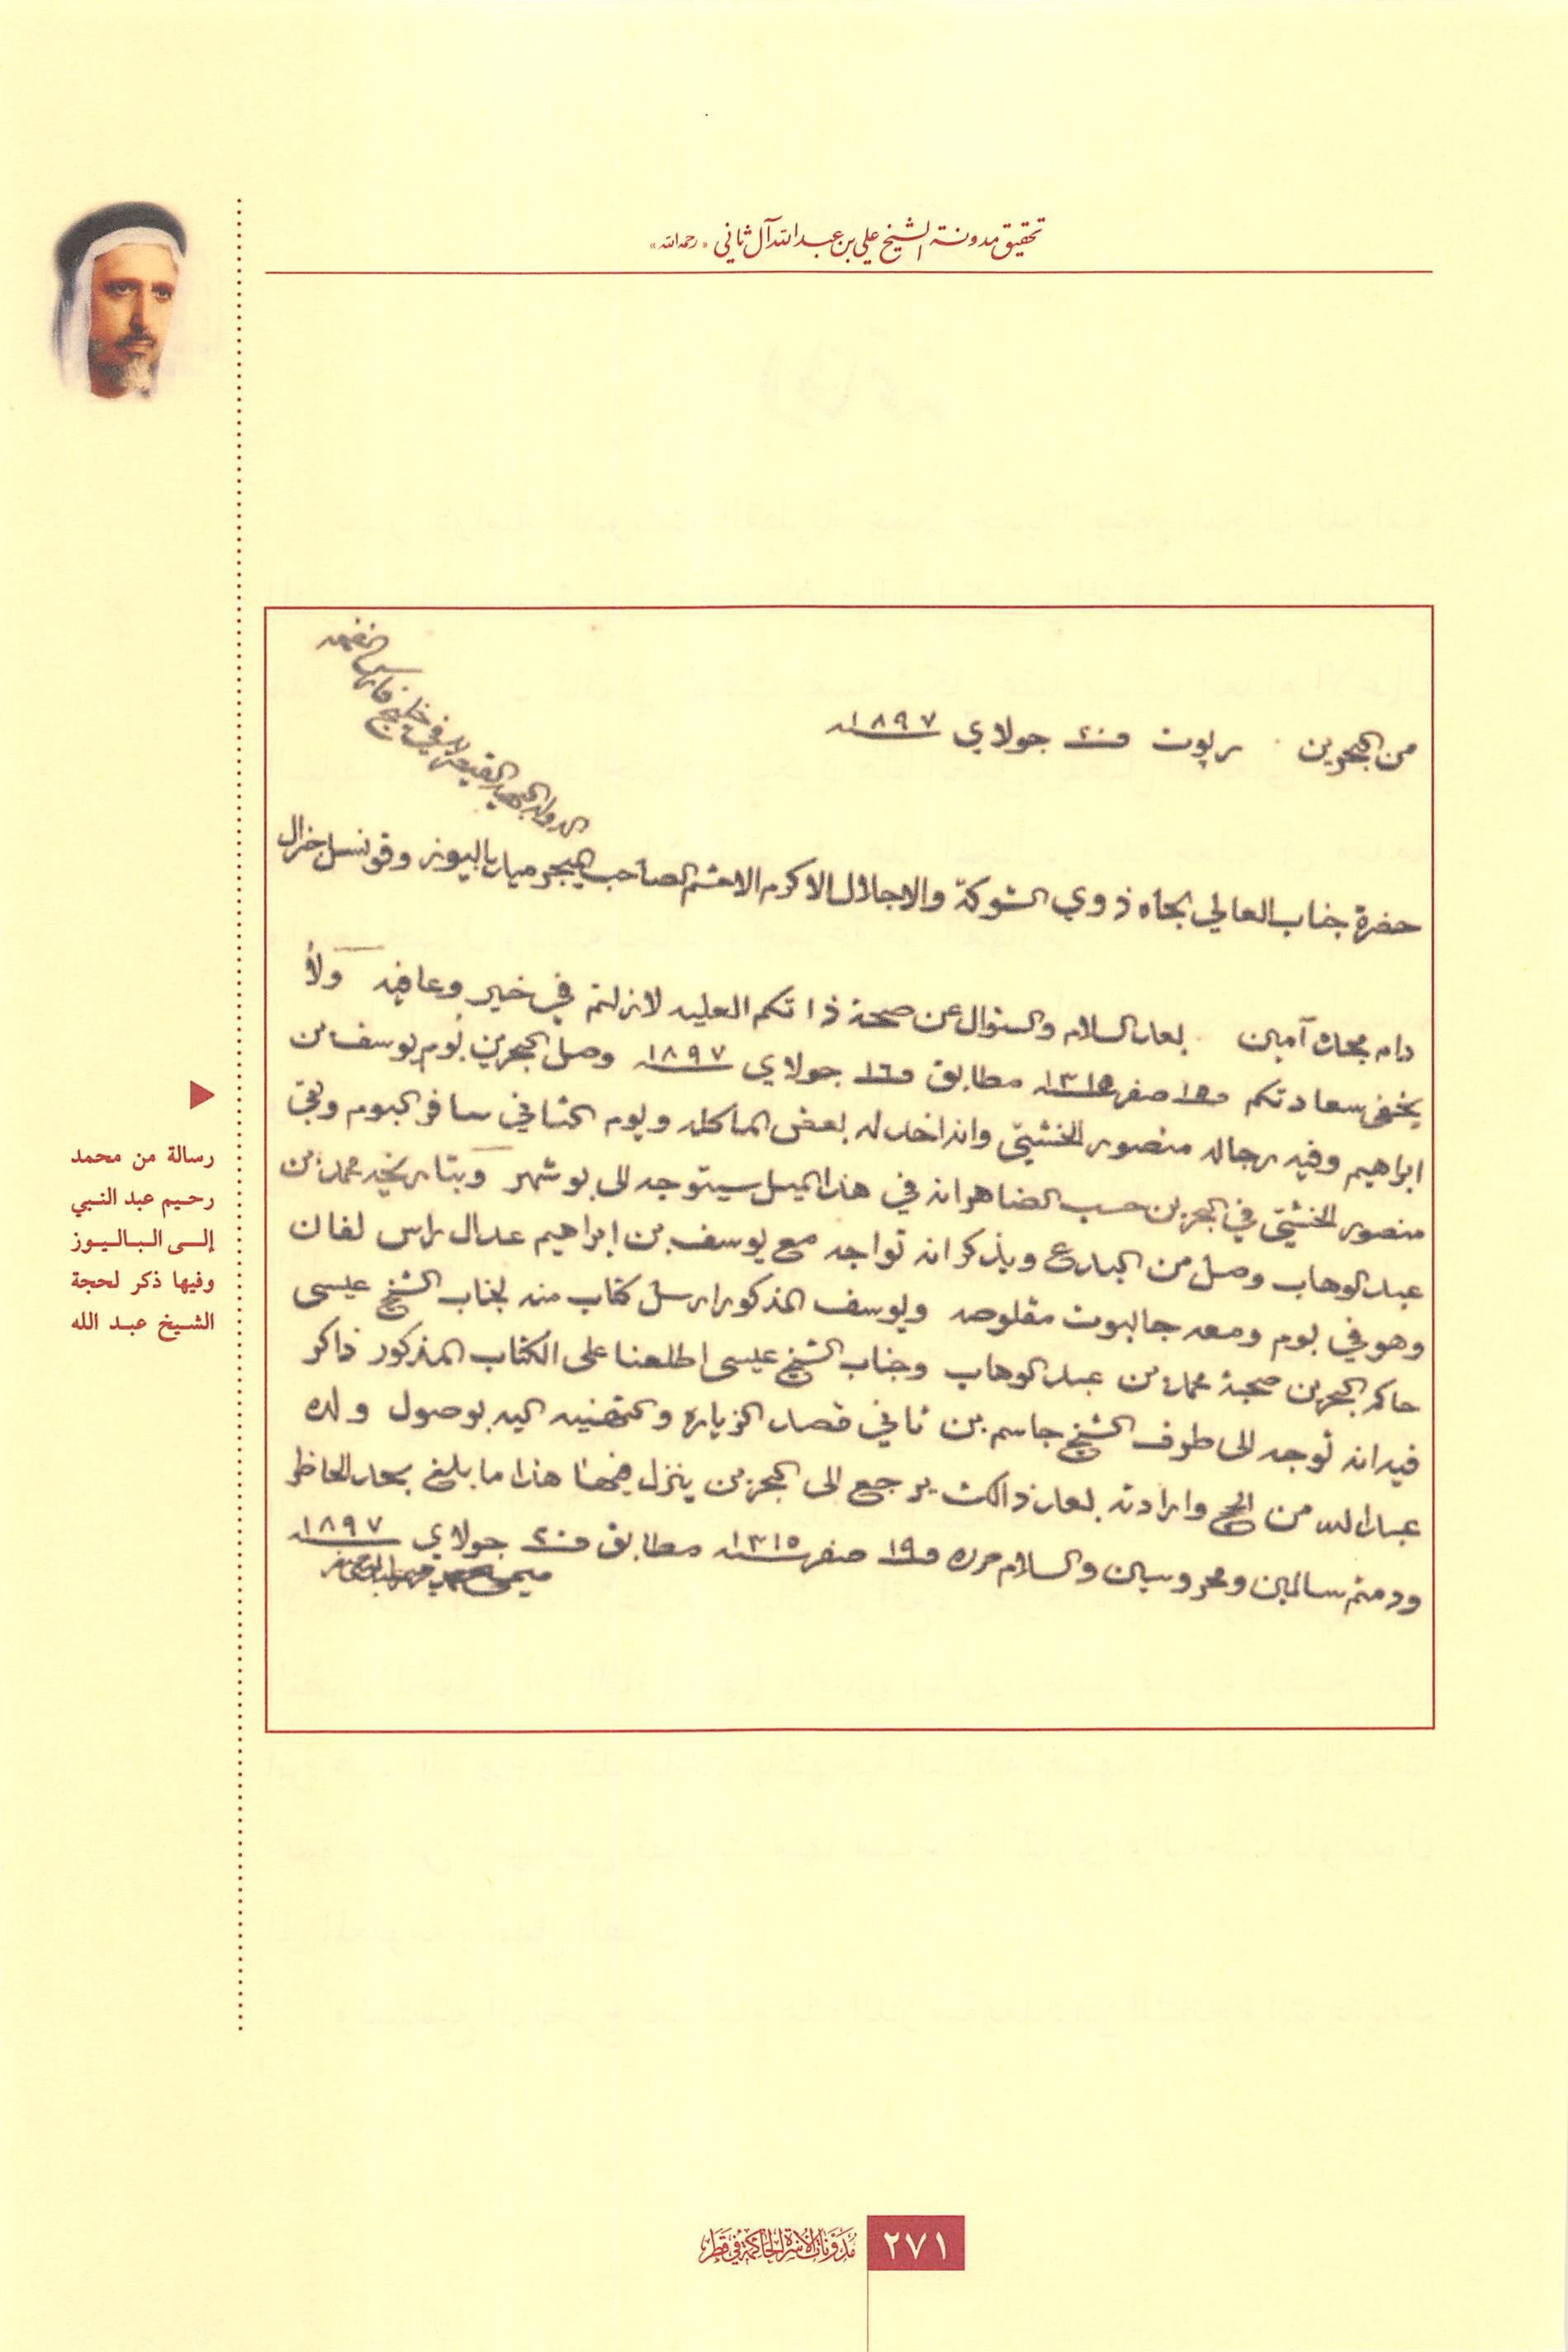 تحقيق مدونة الشيخ علي بن عبد الله آل ثاني «رحمه الله»
من البحرين ربوت في ٢٠ جولاي ١٨٩٧
الدولة البهية القيصرية في خليج فارس
حضرة جناب العالي الجاه ذوي الشوكة والاجلال الاكرم الافخم الصاحب ميجر ميد باليوز وقونسل جنرال
دام مجده آمين بعد السلام والسئوال عن صحة ذاتكم العليه لازلتم في خير وعافيه ولا
يخفى سعادتكم في ١٥ صفر ١٣١٥ مطابق في ١٦ جولاي ١٨٩٧ وصل البحرين بوم يوسف بن
ابراهيم وفيه رجاله منصور الخنشتي وانه اخذ له بعض الماكله ويوم الثاني سافر البوم وبقي
منصور الخنشتي في البحرين حسب الضاهر انه في هذا الميل سيتوجه الى بوشهر وبتاريخه محمد بن
عبد الوهاب وصل من البدع ويذكر انه تواجه مع يوسف بن ابراهيم عدال راس لفان
وهو في بوم ومعه جالبوت مقلوصه ويوسف المذكور ارسل كتاب منه لجناب الشيخ عيسى
حاكم البحرين صحبة محمد بن عبد الوهاب وجناب الشيخ عيسى اطلعنا على الكتاب المذكور ذاكر
فيه انه توجه الى طرف الشيخ جاسم بن ثاني قصد الزياره والتهنيه اليه بوصول ولده
عبد الله من الحج وارادته بعد ذالك يرجع الى البحرين ينزل هذا ما بلغ بحد الحاظر
ودمتم سالمين ومحروسين والسلام حرره في ١٩ صفر ١٣١٥ مطابق في ٢٠ جولاي ١٨٩٧
رسالة من محمد
رحيم عبد النبي
إلى الباليوز
وفيها ذكر لحجة
الشيخ عبد الله
٢٧١
مدونات الأسرة الحاكمة في قطر